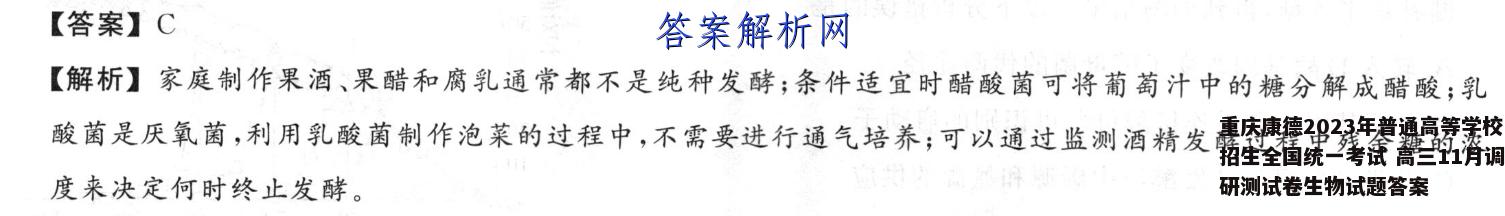 【答案】C
答案解析网
【解析】家庭制作果酒、果醋和腐乳通常都不是纯种发酵;条件适宜时醋酸菌可将葡萄汁中的糖分解成醋酸;乳
酸菌是厌氧菌,利用乳酸菌制作泡菜的过程中,不需要进行通气培养;可以通过监测酒精发酵过程中残余糖的浓
度来决定何时终止发酵。
重庆康德2023年普通高等学校
招生全国统一考试 高三11月调
研测试卷生物试题答案